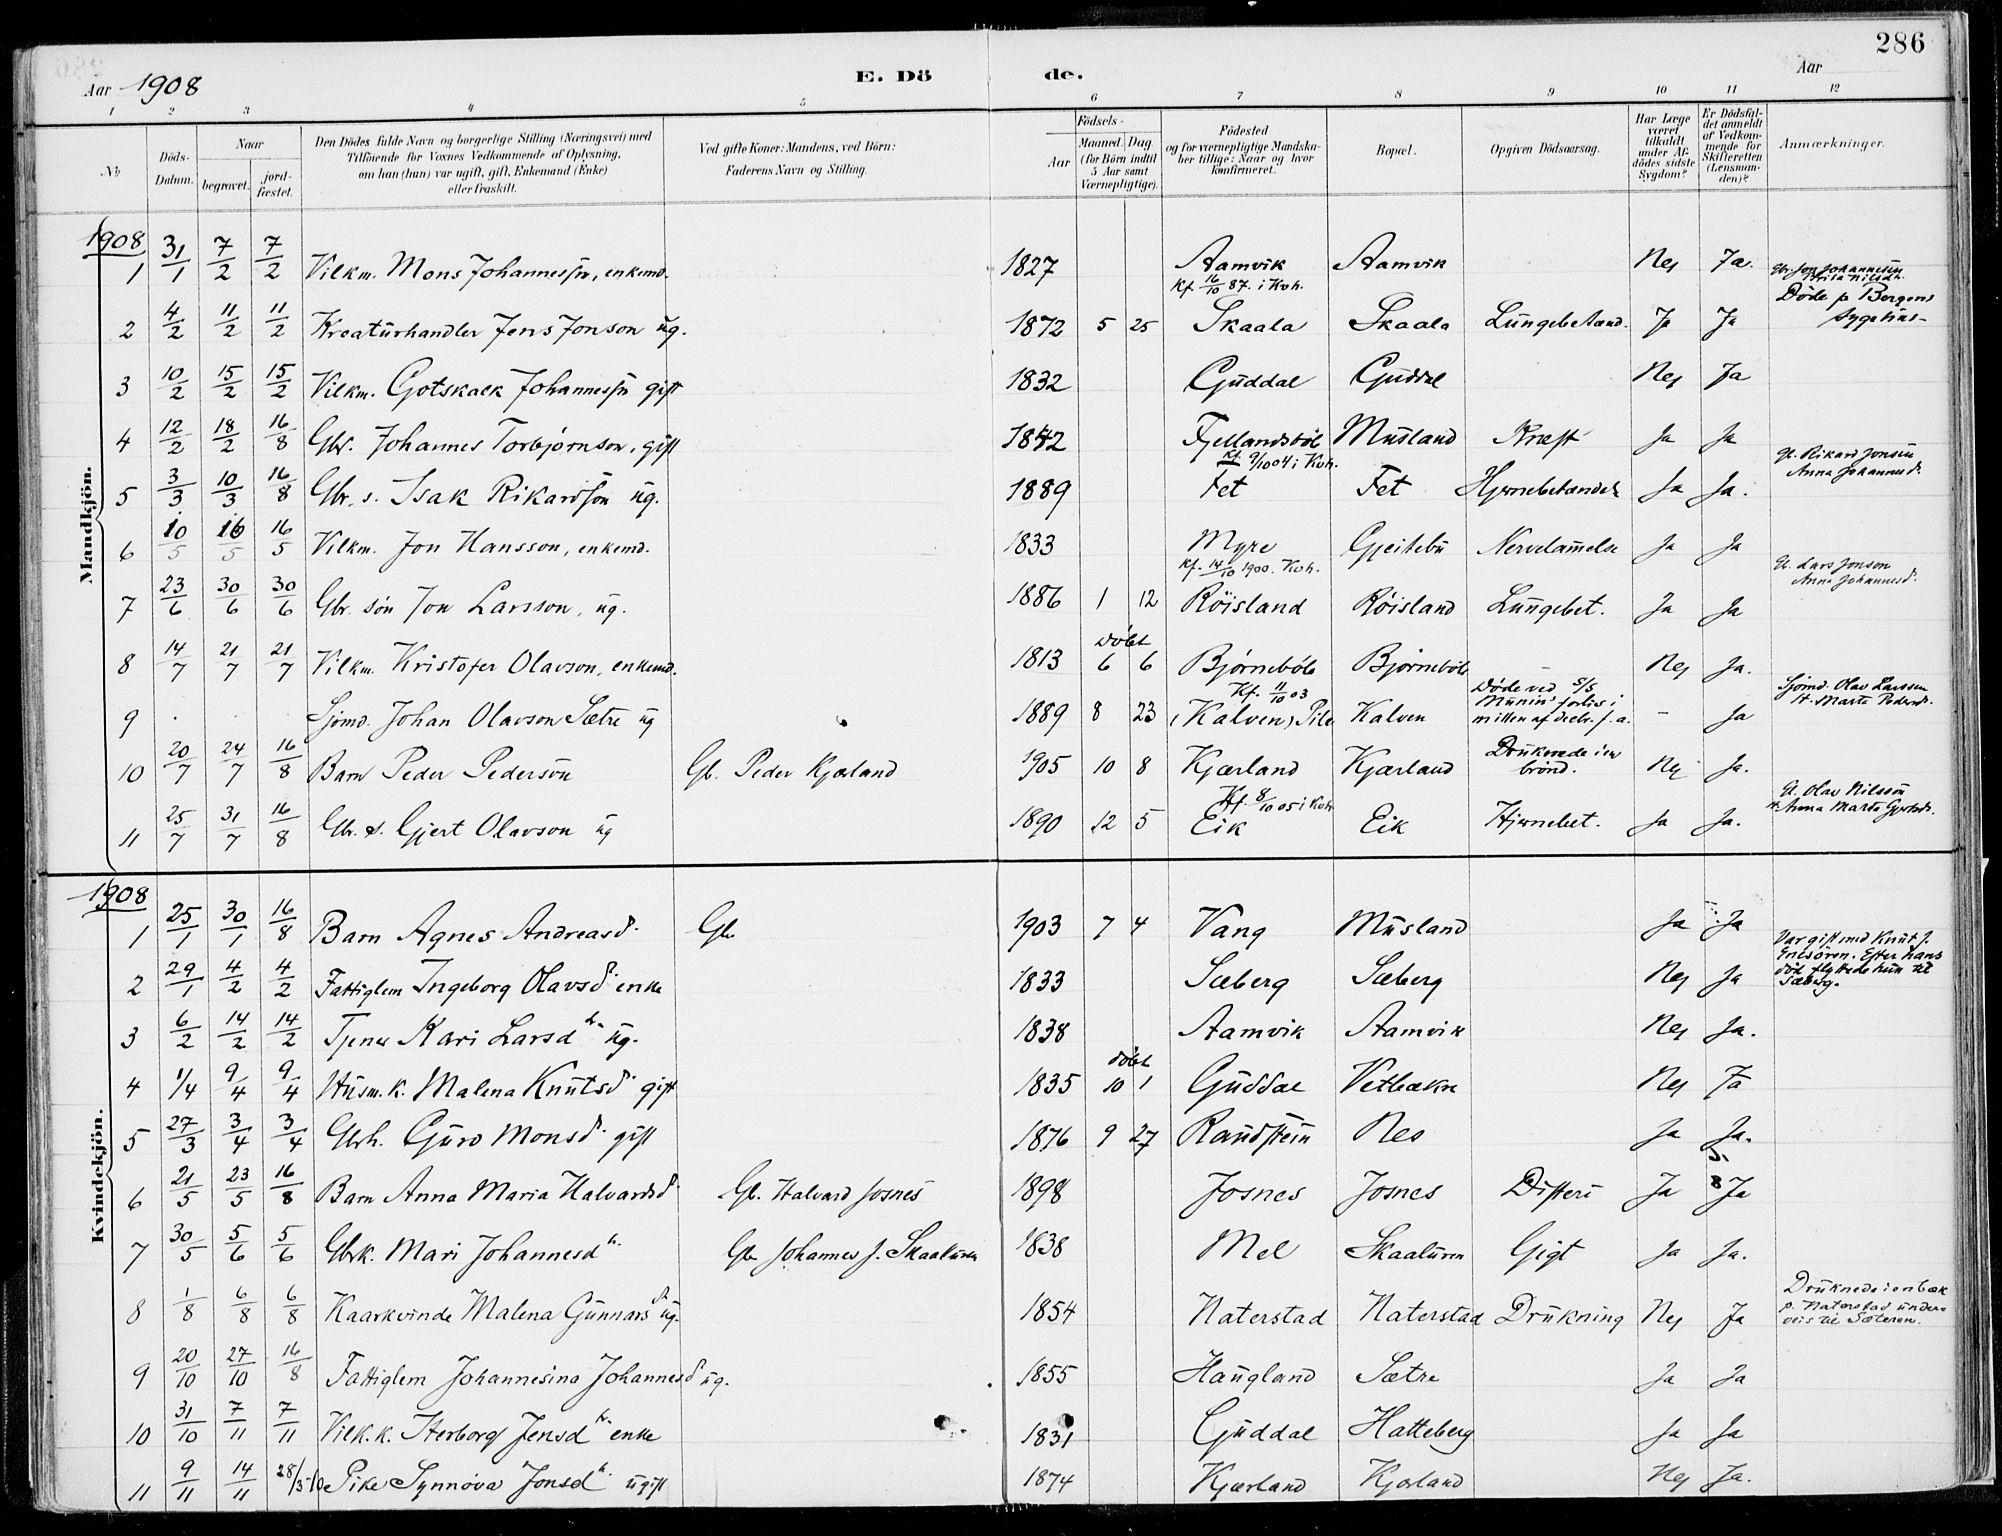 286
Aar 1908 E. Dö de. Aar
1 2 3 4 5 6 7 8 9 10 11 12
№
Döds-Datum.
Naar
begravet.
jord-fæstet.
Den Dödes fulde Navn og borgerlige Stilling (Næringsvei) med
Tilföiende for Voxnes Vedkommende af Oplysning,
om han (hun) var ugift, gift, Enkemand (Enke)
eller fraskilt.
Ved gifte Koner: Mandens, ved Börn:
Faderens Navn og Stilling.
Födsels-
Aar
Maaned. Dag.
(for Börn indtil
5 Aar samt
Værnepligtige).
Födested
og for værnepligtige Mandska-
ber tillige: Naar og hvor
konfirmeret.
Bopæl.
Opgiven Dödsaarsag.
Har Læge
været
tilkaldt
under Af-
dödes sidste
Sygdom?
Er Dödsfal-
det anmeldt
af Vedkom-
mende for
Skifteretten
(Lensman-
den)?
Anmærkninger.
Mandkjön.
1908
1 31/1 7/2 7/2 Vilkm. Mons Johannessön, enkemd. 1827 Aamvik Aamvik Nej Ja.
2 4/2 11/2 11/2 Kreaturhandler Jens Jonson ug. 1872 5 25 Kf. 16/10 87. i Kvh. Skaala Skaala Lungebetænd. Ja Ja Döde p Bergens Sygehus
3 10/2 15/2 15/2 Vilkm. Gotskalk Johannessön gift 1832 Guddal Guddal Nej Ja
4 12/2 18/2 16/8 Gbr. Johannes Torbjørnson, gift 1842 Fjellandsböl Musland Kræft Ja Ja
5 3/3 10/3 16/8 Gbr. s. Isak Rikardsön ug. 1889 Kf. 9/10 04 i Kvh. Fet Fet Hjernebetændels Ja Ja. G. Rikard Jonsön Anna Johannesd.
6 10/5 16/5 16/5 Vilkm. Jon Hansson, enkemd. 1833 Myre Gjeitebu Nervelammelse Ja Ja
7 23/6 30/6 30/6 Gbr. sön Jon Larsson, ug. 1886 1 12 Kf. 14/10 1900. Kvh. Röisland Röisland Lungebet. Ja Ja G. Lars Jonson Anna Johannesd.
8 14/7 21/7 21/7 Vilkm. Kristofer Olavson, enkemd. 1813 döbt 6 6 Bjørneböle Bjørneböle Nej Ja.
9 Sjömd. Johan Olavson Sætre ug 1889 8 23 Kf. 11/10 03 (Kalven) Kalven Döde ved S/S Munins forlis i midten af decbr. f. a. – Ja Sjömd. Olav Larssen H. Marta Pedersd.
10 20/7 24/7 16/8 Barn Peder Pedersön Gb. Peder Kjærland 1905 10 8 Kjærland Kjærland Druknede i en brönd. Nej Ja.
11 25/7 31/7 16/8 Gbr. s. Gjert Olavson ug 1890 12 5 Kf. 8/10 05 i Kvh Eik Eik Hjernebet. Ja Ja. G. Olav Nilsson H. Anna Marta Gjertsd.
Kvindekjön.
1908
1 25/1 30/1 16/8 Barn Agnes Andreasd. Gb. 1903 7 4 Vang Musland Ja Ja
2 29/1 4/2 4/2 Fattiglem Ingeborg Olavsd. enke 1833 Sæberg Sæberg Nej Ja Var gift med Knut J. Efter hans död flyttede hun til Sæberg.
3 6/2 14/2 14/2 Tjener Kari Larsdtr. ug. 1838 Aamvik Aamvik Nej Ja.
4 1/4 9/4 9/4 Husm. k. Malena Knutsd. gift 1835 döbt 10 1 Guddal Vetlæka Nej Ja
5 27/3 3/4 3/4 Gbrk. Guro Monsd. gift 1876 9 27 Raudstein Nes Ja Ja.
6 21/5 23/5 16/8 Barn Anna Maria Halvardsd. Gb. Halvard Josnes 1898 Josnes Josnes Difteri Ja 5/8 Ja
7 30/5 5/6 5/6 Gbrk. Mari Johannesdtr. Gb Johannes J. Skaaluren 1838 Mel Skaaluren Gigt Ja Ja.
8 1/8 6/8 6/8 Kaarkvinde Malena Gunnarsd. ug. 1854 Naterstad Naterstad Drukning Nej Ja Druknede i en bæk p. Naterstad underveis til Sæteren.
9 20/10 27/10 16/8 Fattiglem Johannesina Johannesd ug. 1855 Haugland Sætre Ja Ja
10 31/10 7/11 7/11 Vilk. k. Herborg Jensdtr. enke 1831 Guddal Hatteberg Ja Ja
11 9/11 14/11 28/3 10 Pike Synnöva Jonsdtr. ugift 1874 Kjærland Kjærland Nej Ja.